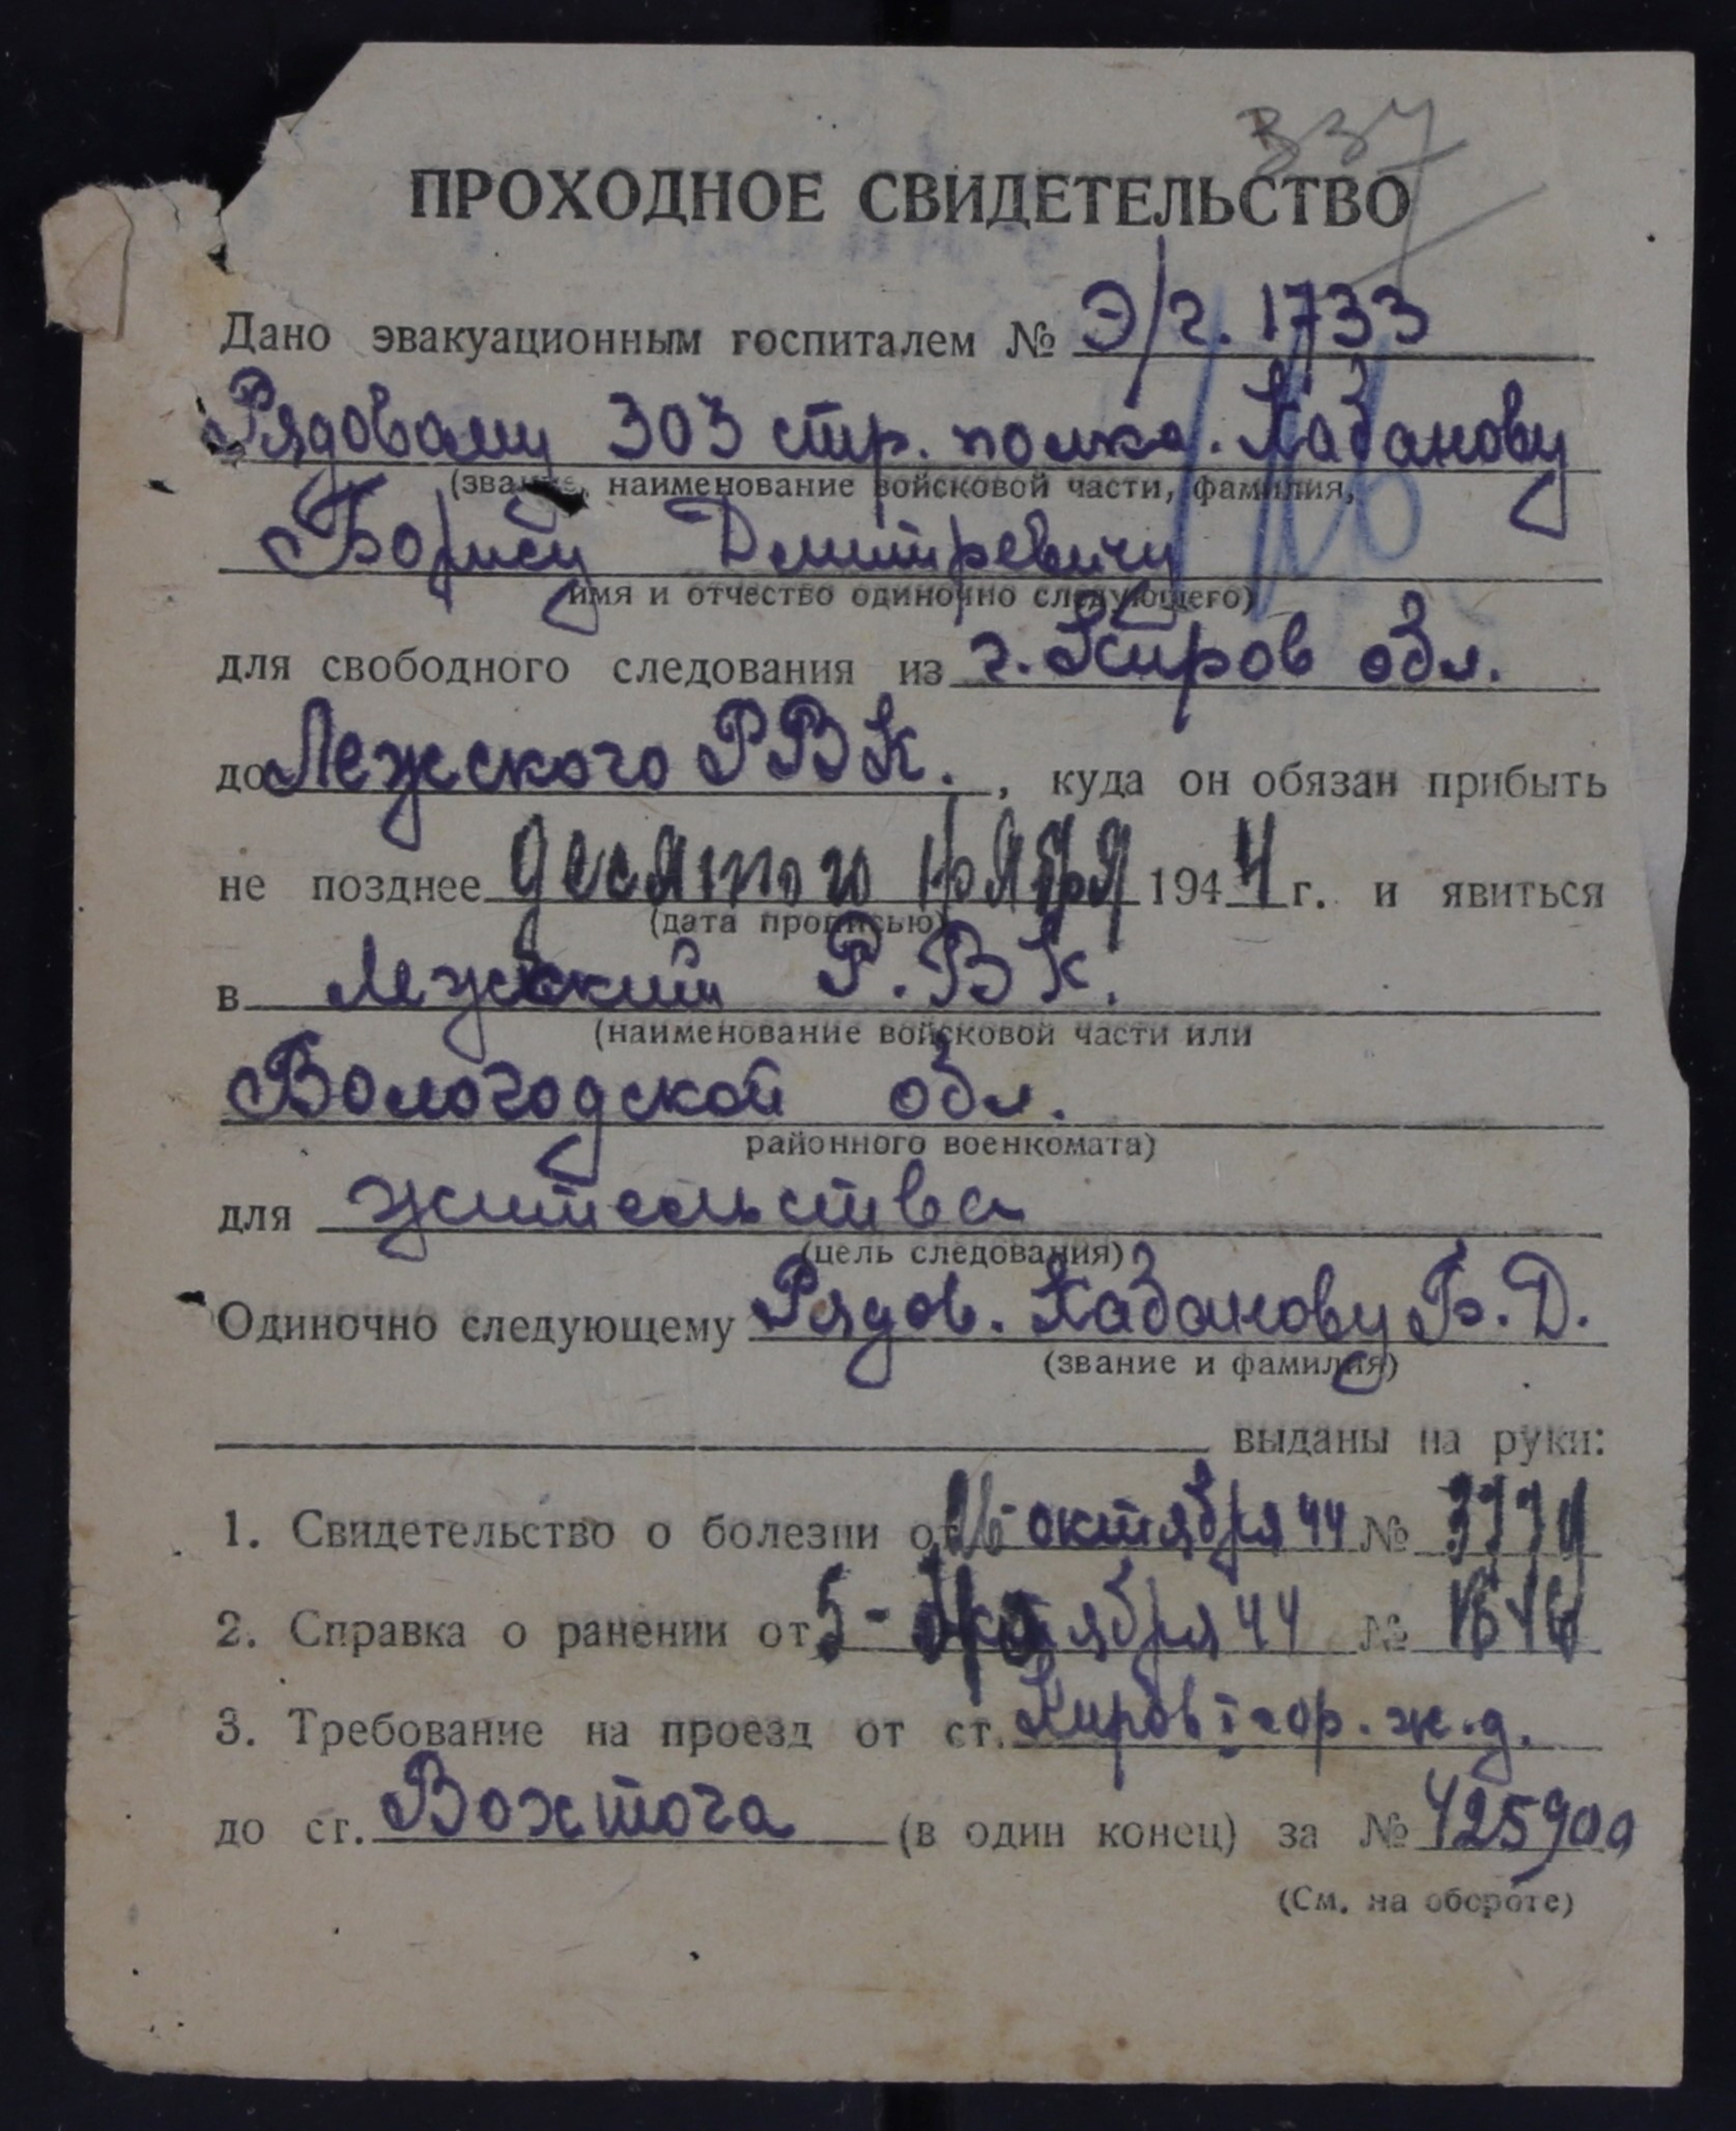 337
ПРОХОДНОЕ СВИДЕТЕЛЬСТВО
Дано эвакуационным госпиталем № Э/г. 1733
Рядовому 303 стр. полка. Кабанову
(звание, наименование войсковой части, фамилия,
Борису Дмитревичу
имя и отчество одиночно следующего)
для свободного следования из г. Киров обл.
до Лежского РВК. , куда он обязан прибыть
не позднее десятого ноября 1944 г. и явиться
(дата прописью)
в Лежский Р.ВК.
(наименование войсковой части или
Вологодской обл.
районного военкомата)
для жительства
(цель следования)
Одиночно следующему Рядов. Кабанову Б.Д.
(звание и фамилия)
выданы на руки:
1. Свидетельство о болезни от октября 44 №
2. Справка о ранении от 5 - октября 44 №
3. Требование на проезд от ст. Киров I гор. ж.д.
до ст. Вохтога (в один конец) за № 425900
(См. на обороте)